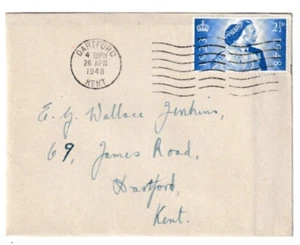 DARTFORD
4 30PM
26 APR
1948
KENT
1923
2½D
1948
E. G. Wallace Jenkins,
69, James Road,
Dartford,
Kent.